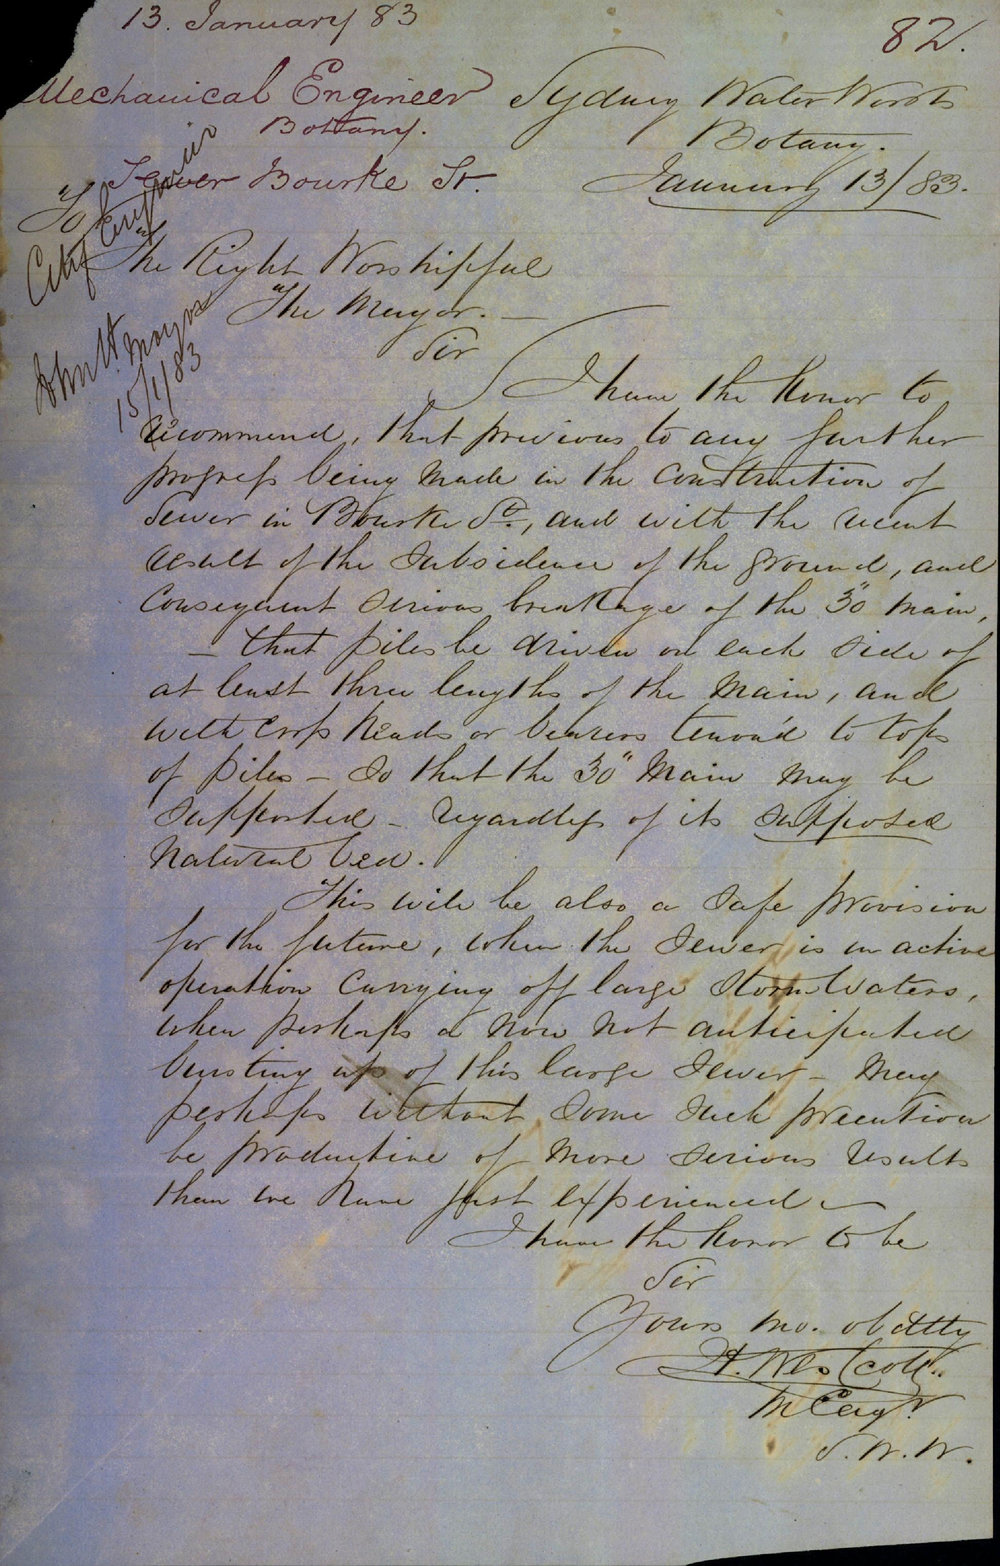 13. January 83
82.
Mechanical Engineer
Bottany.
Sewer Bourke St.
Sydney Water Works
Botany.
January 13/83.
To
The Right Worshipful
The Mayor. —
City Engineer
John H. Mayor
15/1/83
Sir
I have the honor to
recommend, that previous to any further
progress being made in the construction of
Sewer in Bourke St., and with the recent
result of the subsidence of the ground, and
consequent serious breakage of the 30" main,
— that piles be driven on each side of
at least three lengths of the main, and
with cross heads or bearers tenon'd to tops
of piles — so that the 30" Main may be
supported — regardless of its supposed
natural bed.
This will be also a safe provision
for the future, when the sewer is in active
operation carrying off large storm waters,
when perhaps a now not anticipated
bursting up of this large sewer — may
perhaps without some such precaution
be productive of more serious results
than we have just experienced —
I have the honor to be
Sir
Yours mo. obdtly
H. Westcott
M Engr.
S. W. W.